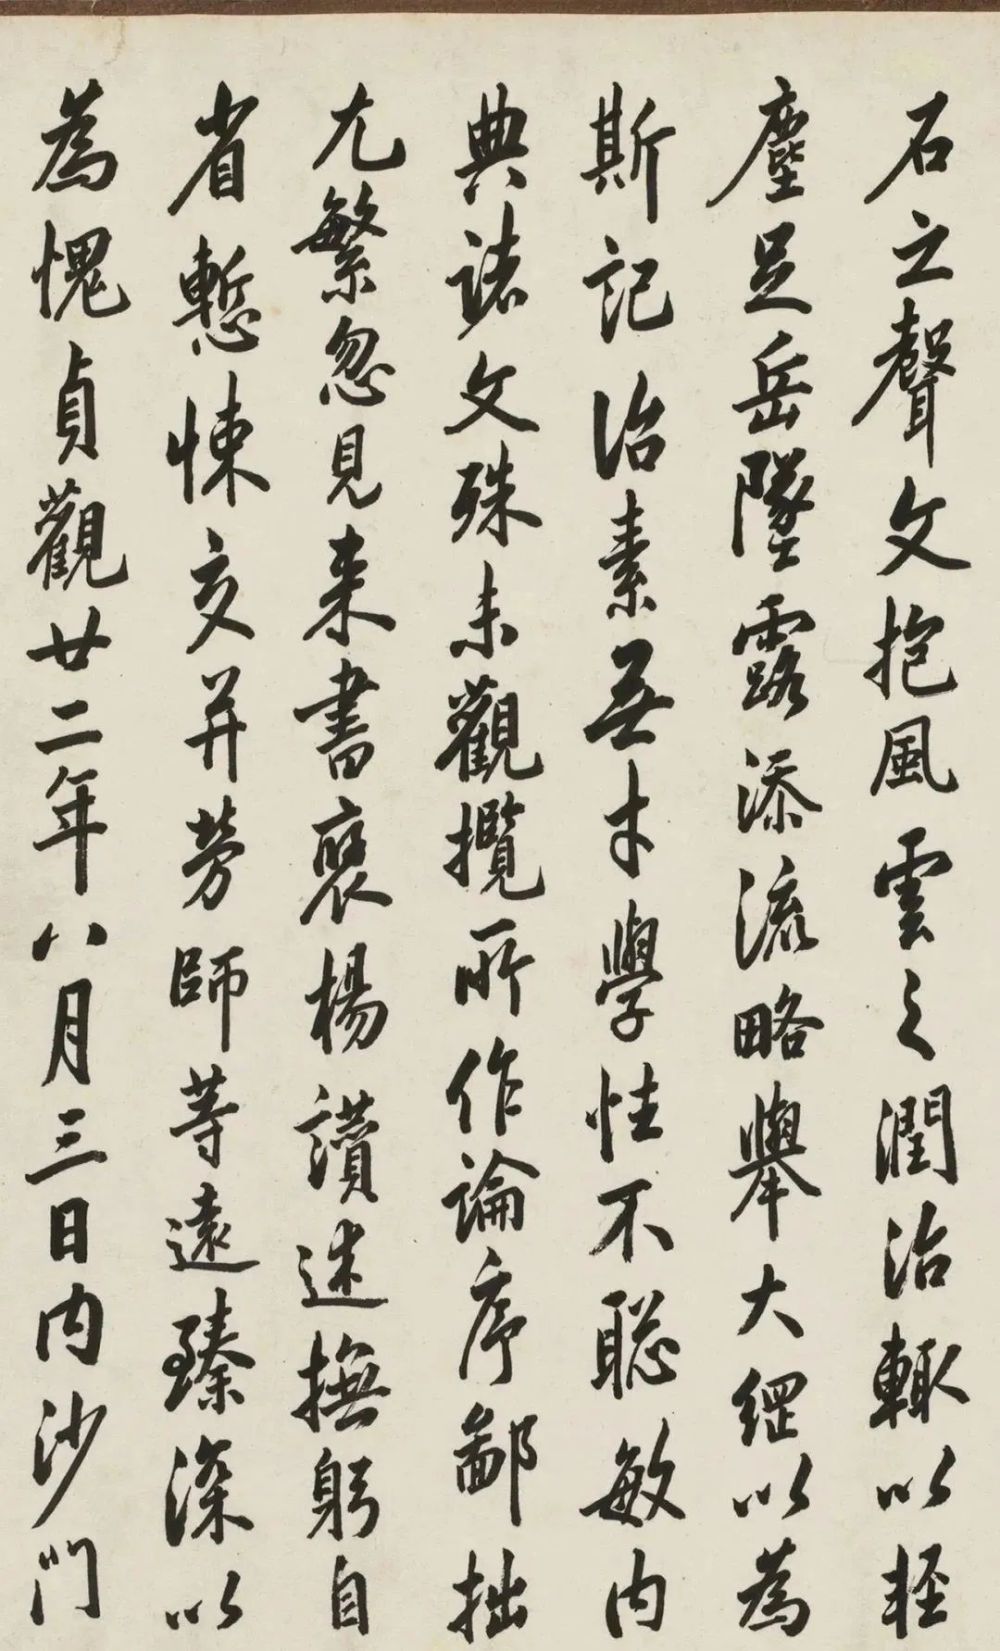 石之聲文抱風雲之潤治輒以輕
塵足岳墜露添流略舉大綱以為
斯記治素無才學性不聡敏內
典諸文殊未觀攬所作論序鄙拙
尤繁忽見来書褒楊讃述撫躬自
省慙悚交并勞師等遠臻深以
為愧貞觀廿二年八月三日內沙門